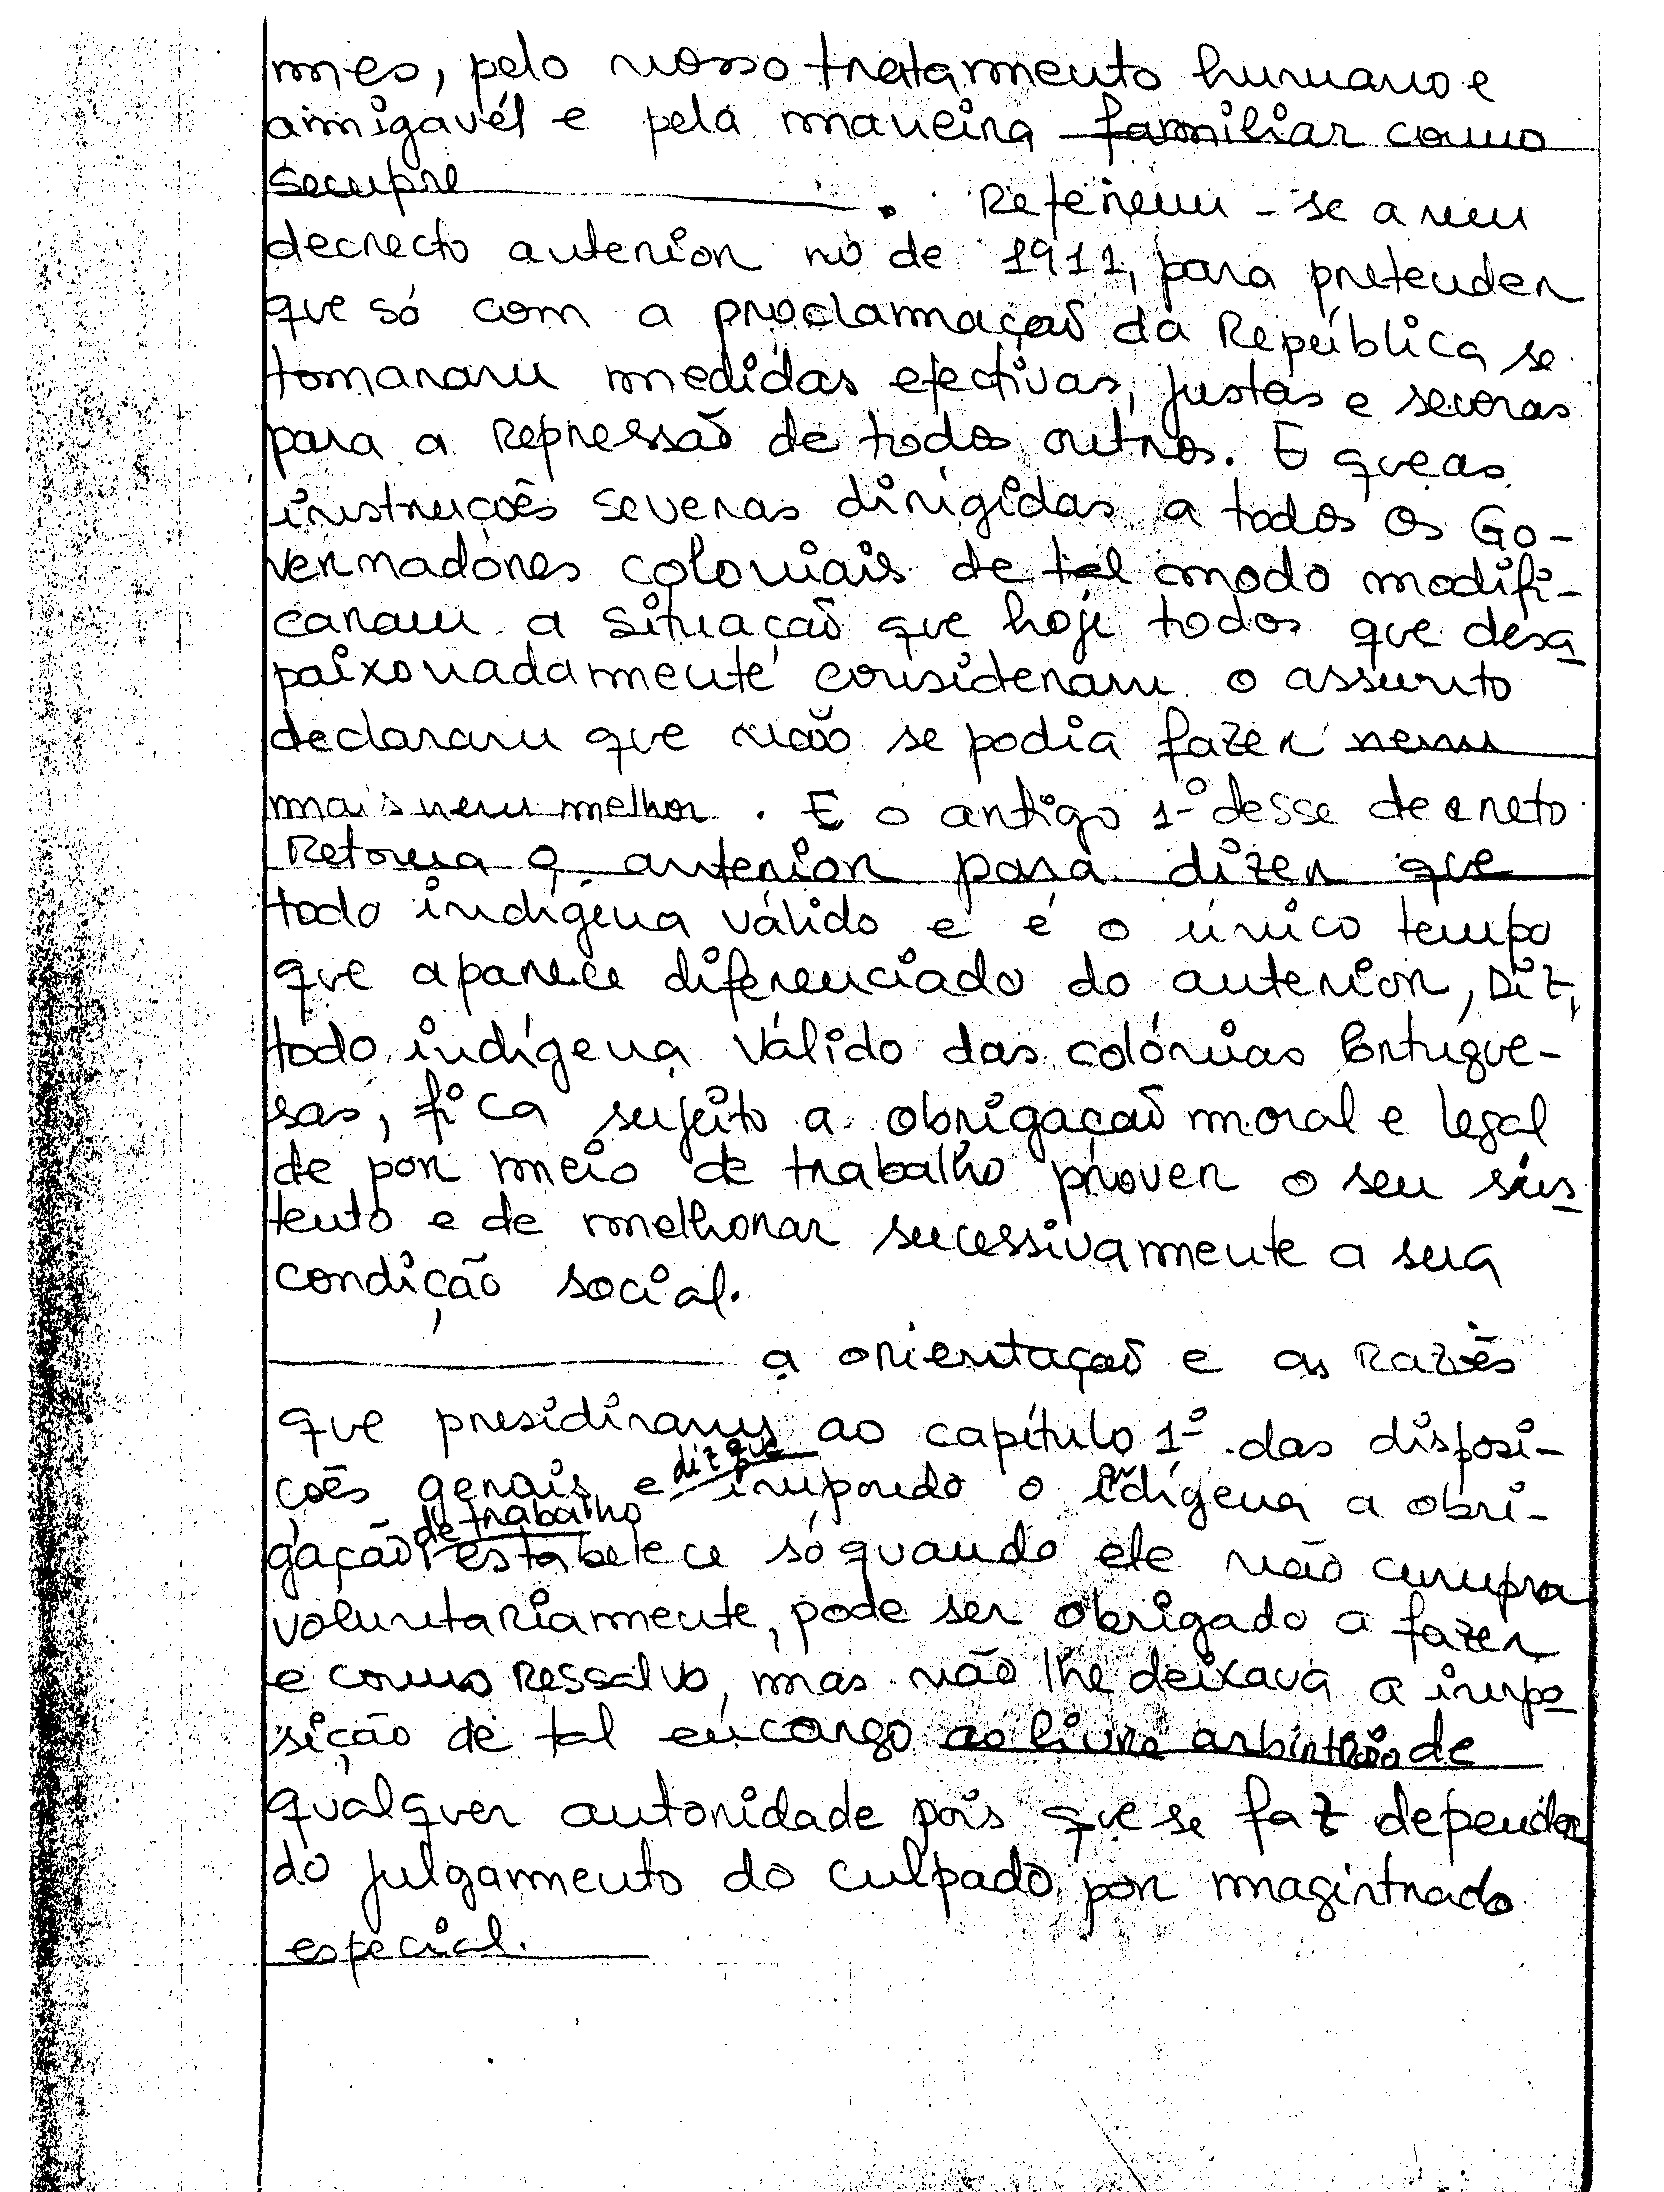 mes, pelo nosso tratamento humano e
amigavél e pela maneira familiar como
sempre ______. Referem-se a um
decrecto anterior nº de 1911, para pretender
que só com a proclamação da República se
tomaram medidas efectivas, justas e severas
para a repressão de todos outros. E que as
instruções severas dirigidas a todos os Go-
vernadores coloniais de tal modo modifi-
caram a situação que hoje todos que desa
paixonadamente consideram o assunto
declaram que não se podia fazer nem
mais nem melhor. E o antigo 1º desse decreto
Retoma o anterior para dizer que
todo indígena válido e é o único tempo
que aparece diferenciado do anterior, Diz,
todo indígena válido das colónias Portugue-
sas, fica sujeito a obrigação moral e legal
de por meio de trabalho prover o seu sus
tento e de melhorar sucessivamente a sua
condição social.
______ a orientação e as Razões
que presidiram ao capítulo 1º das disposi-
ções gerais e diz que impondo o indígena a obri-
gação de trabalho estabelece só quando ele não cumpra
voluntariamente, pode ser obrigado a fazer
e como Ressalvo, mas não lhe deixava a impo
sição de tal encargo ao livre arbintrio de
qualquer autoridade pois que se faz depender
do julgamento do culpado por magistrado
especial.